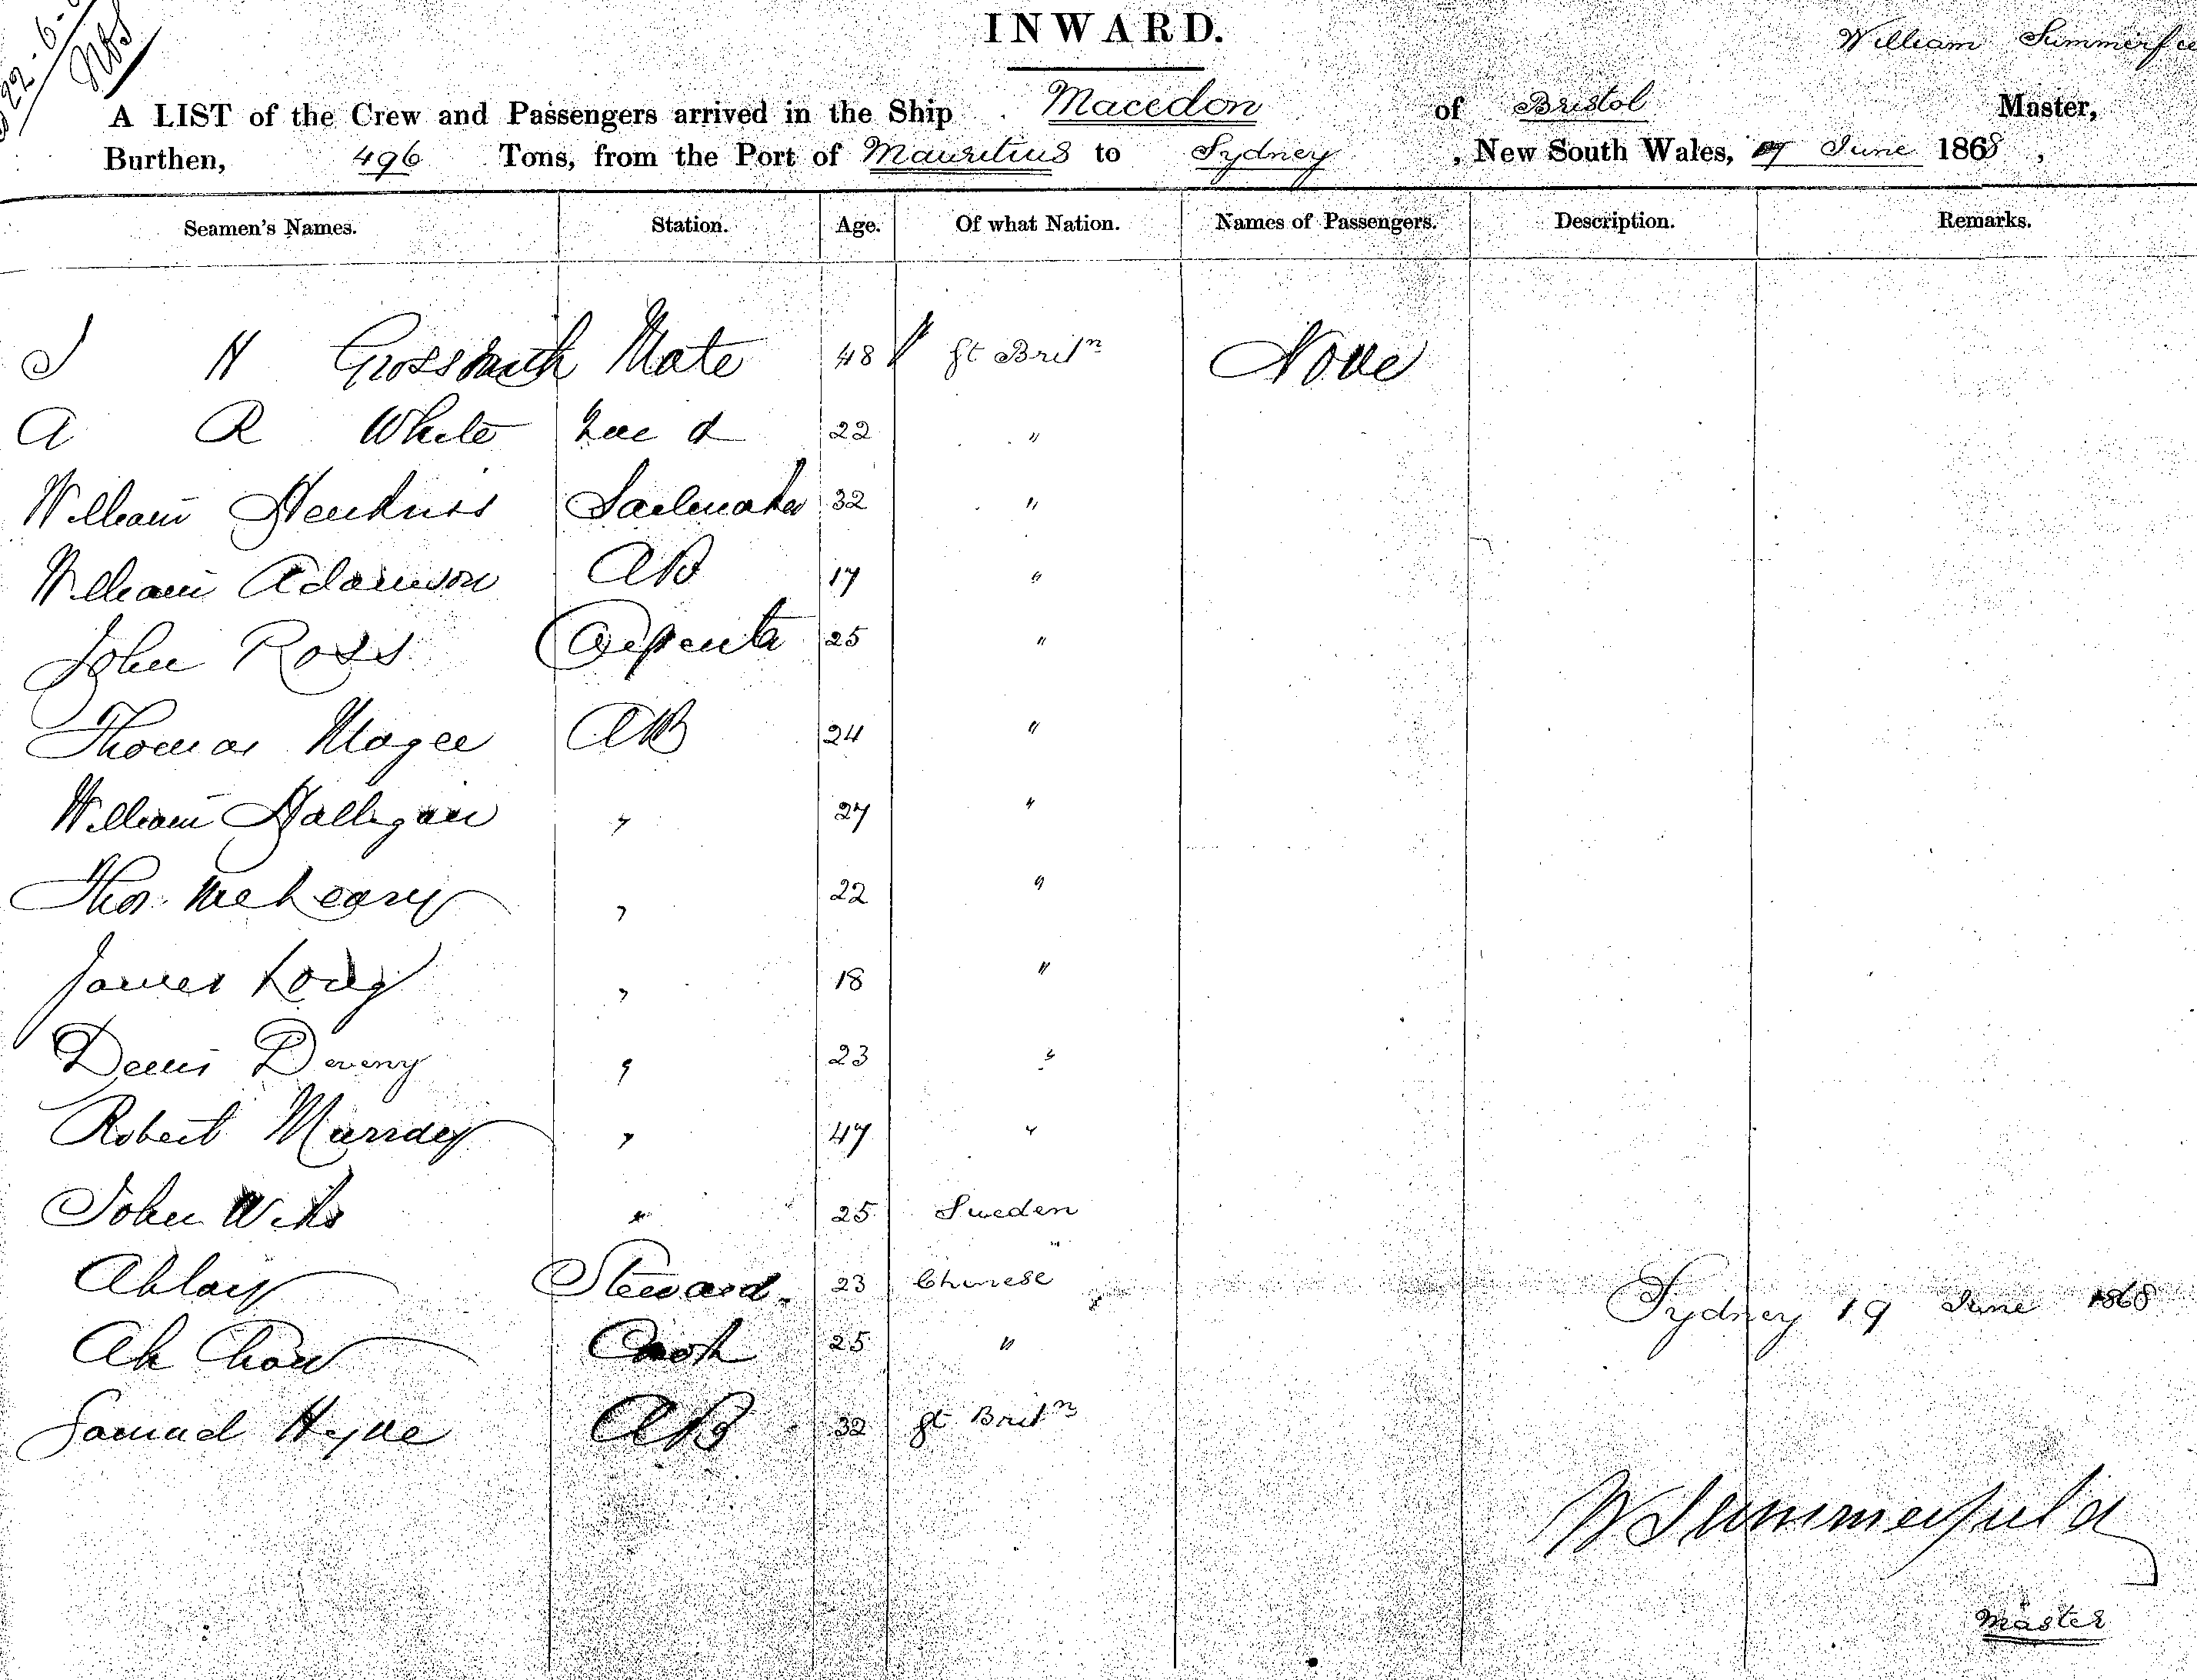 22-6-
INWARD.
William Summerfie
A LIST of the Crew and Passengers arrived in the Ship Macedon of Bristol Master,
Burthen, 496 Tons, from the Port of Mauritius to Sydney, New South Wales, June 1868,
Seamen's Names. Station. Age. Of what Nation. Names of Passengers. Description. Remarks.
J H Grossmith Mate 48 " Gt Britn None
A R White 22 "
William Henkniss Sailmaker 32 "
William Adamson AB 17 "
John Ross Carpenter 25 "
Thomas Magee AB 24 "
William Halligan " 27 "
Thos. McLeary " 22 "
James Long " 18 "
Denis Deveny " 23 "
Robert Murray " 47 "
John " 25 Sweden
Ahlay Steward. 23 Chinese
Sydney 19 June 1868
Ah Chow Cook 25 "
Samuel Hyde AB 32 Gt Britn
W Summerfield
Master